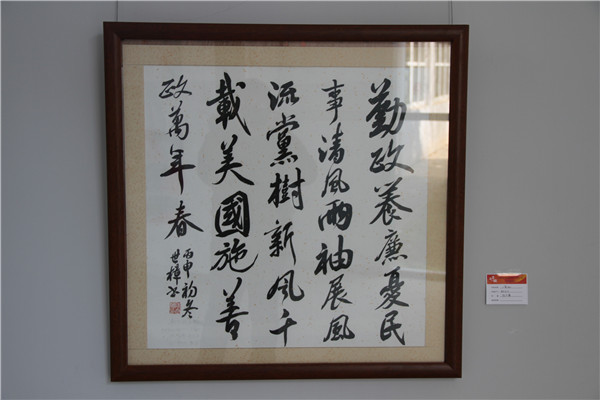 勤政養廉憂民
事清風兩袖展風
流黨樹新風千
載美國施善
政萬年春
丙申初冬
世樟书